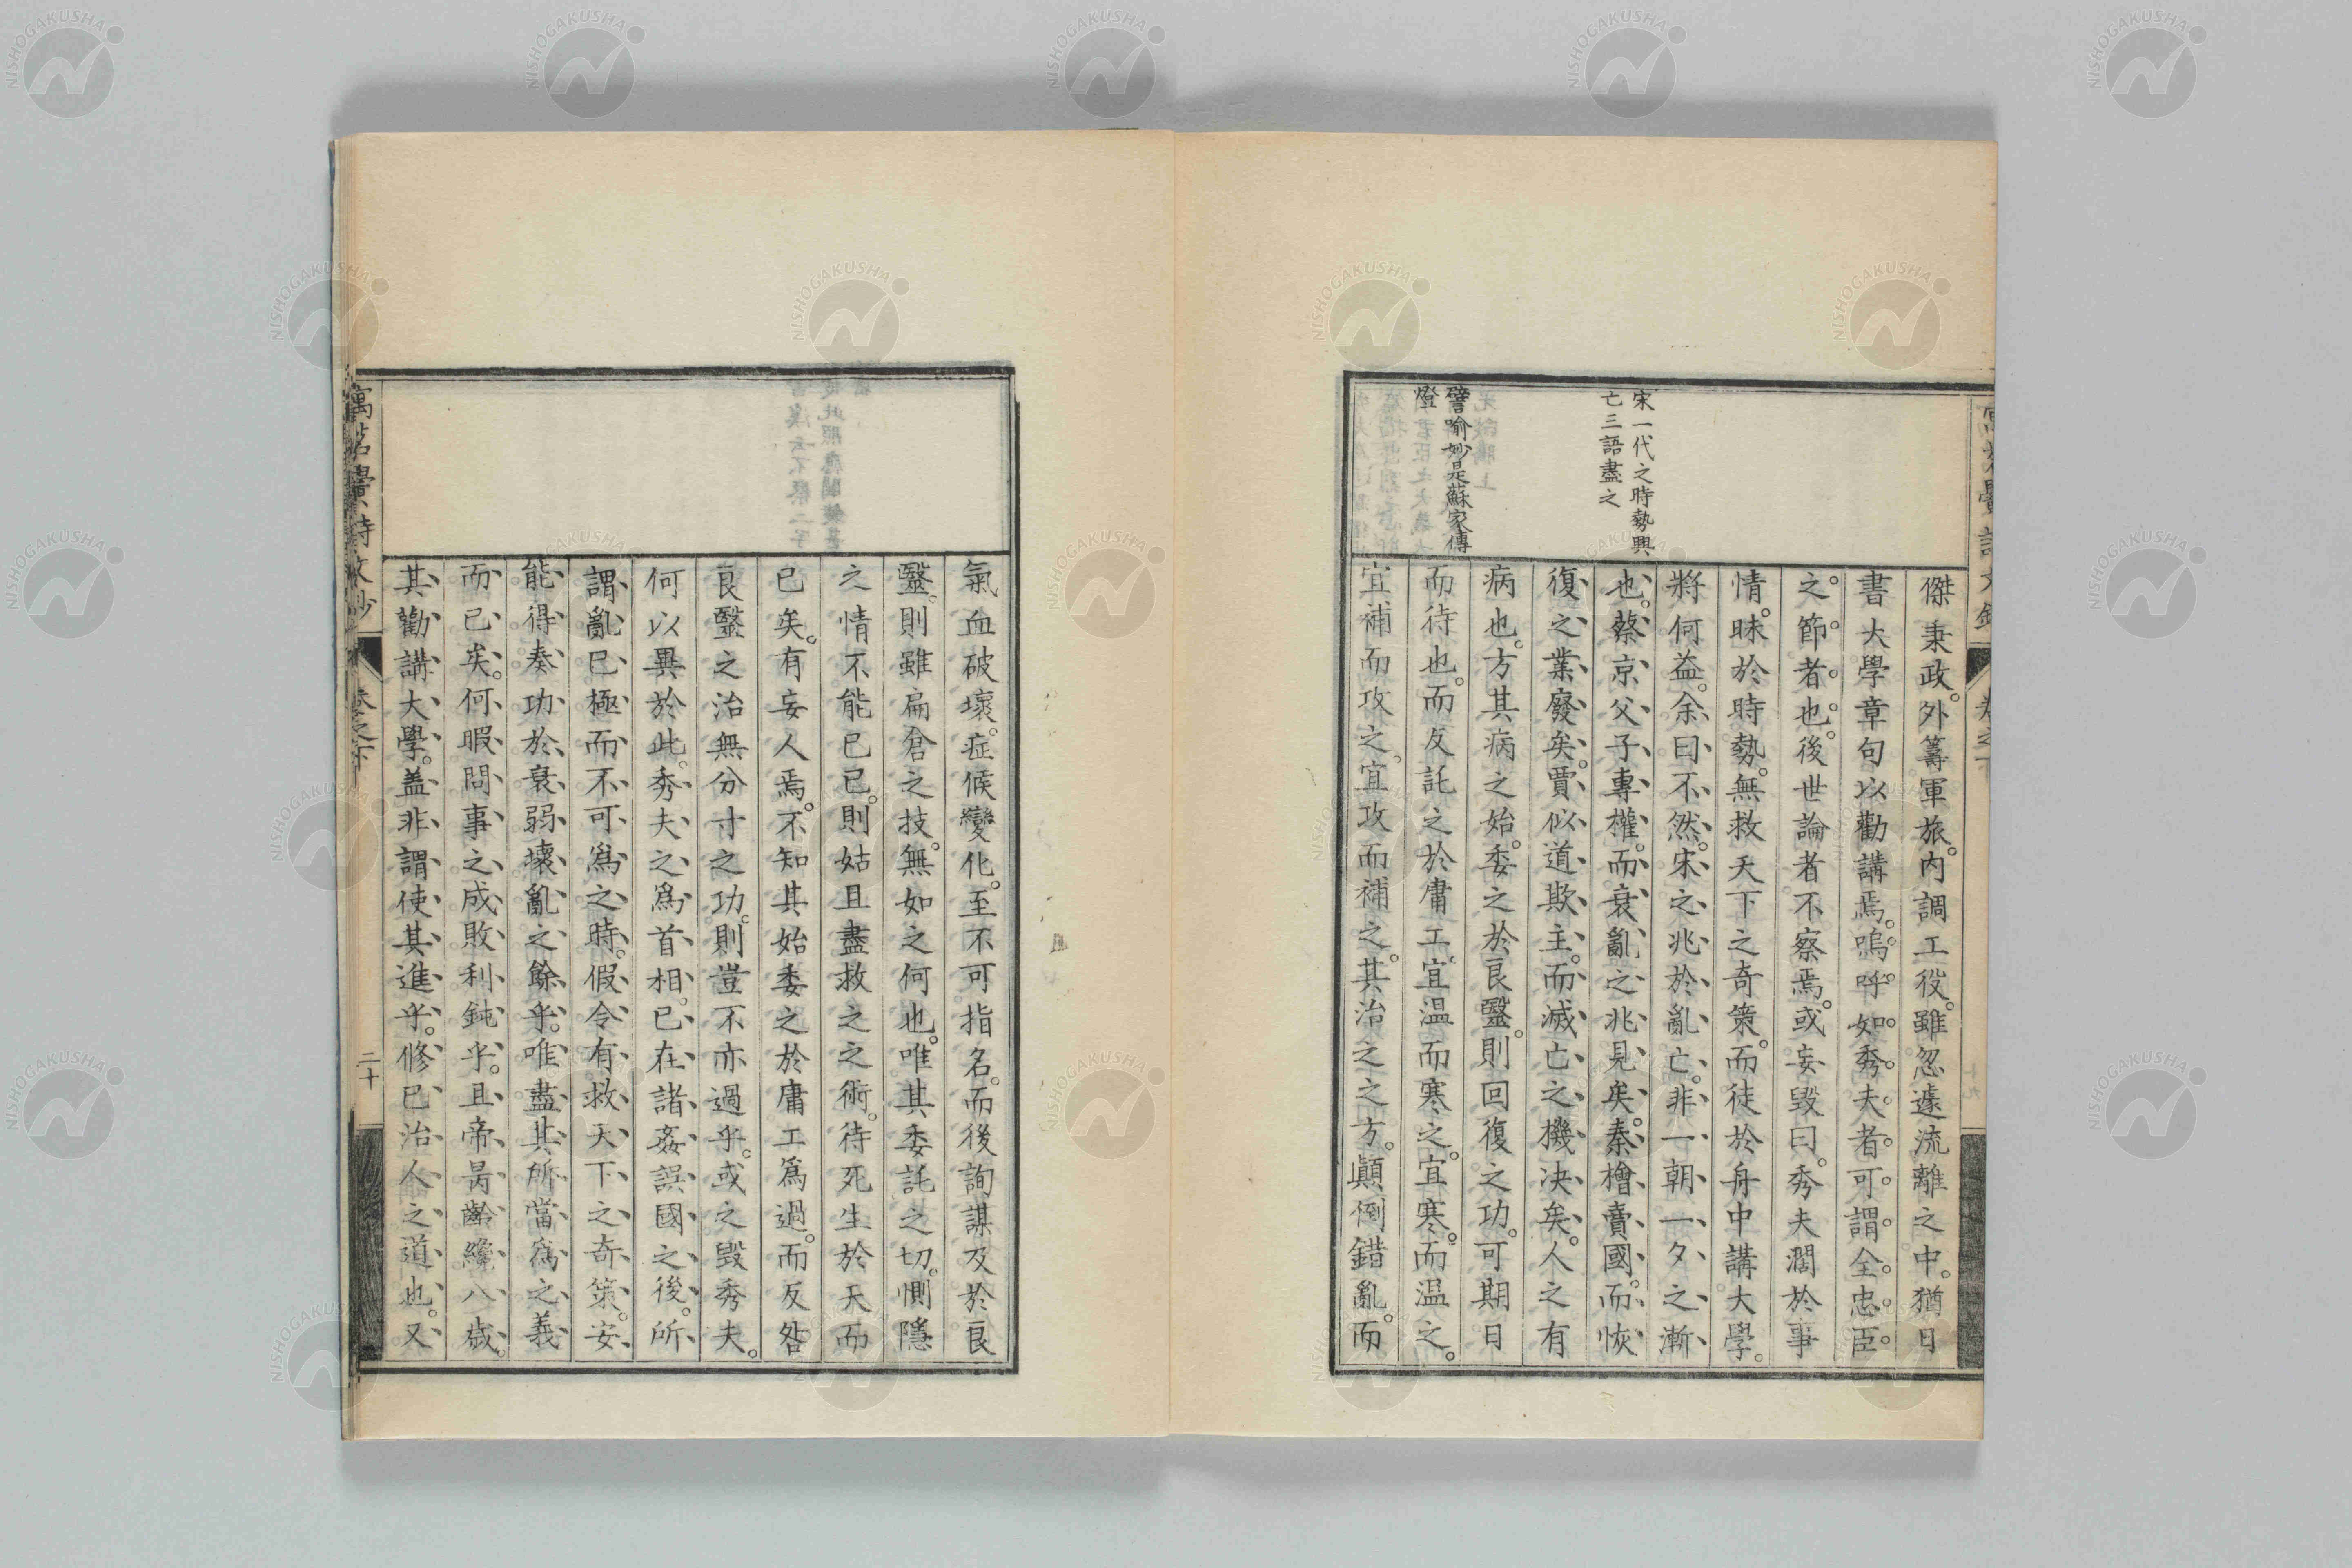 宋一代之時勢興
亡三語盡之
譬喻妙是蘇家傳
燈
傑秉政。外籌軍旅。內調工役。雖忽遽流離之中。猶日
書大學章句以勸講焉。嗚呼。如秀夫者。可謂全忠臣
之節者也。後世論者不察焉。或妄毀曰。秀夫濶於事
情。昧於時勢。無救天下之奇策。而徒於舟中講大學。
將何益。余曰不然。宋之兆於亂亡。非一朝一夕之漸
也。蔡京父子專權。而衰亂之兆見矣。秦檜賣國。而恢
復之業廢矣。賈似道欺主。而滅亡之機决矣。人之有
病也。方其病之始。委之於良醫。則回復之功。可期日
而待也。而反託之於庸工。宜温而寒之。宜寒。而温之。
宜補而攻之。宜攻而補之。其治之之方。顚倒錯亂。而
氣血破壞。症候變化。至不可指名。而後詢謀及於良
醫。則雖扁倉之技。無如之何也。唯其委託之切。惻隱
之情不能已已。則姑且盡救之之術。待死生於天而
已矣。有妄人焉。不知其始委之於庸工爲過。而反咎
良醫之治無分寸之功。則豈不亦過乎。或之毀秀夫。
何以異於此。秀夫之爲首相。已在諸姦誤國之後。所
謂亂已極而不可爲之時。假令有救天下之奇策。安
能得奏功於衰弱壞亂之餘乎。唯盡其所當爲之義
而已矣。何暇問事之成敗利鈍乎。且帝昺齡纔八歲。
其勸講大學。蓋非謂使其進乎。修已治人之道也。又
卷之下
二十